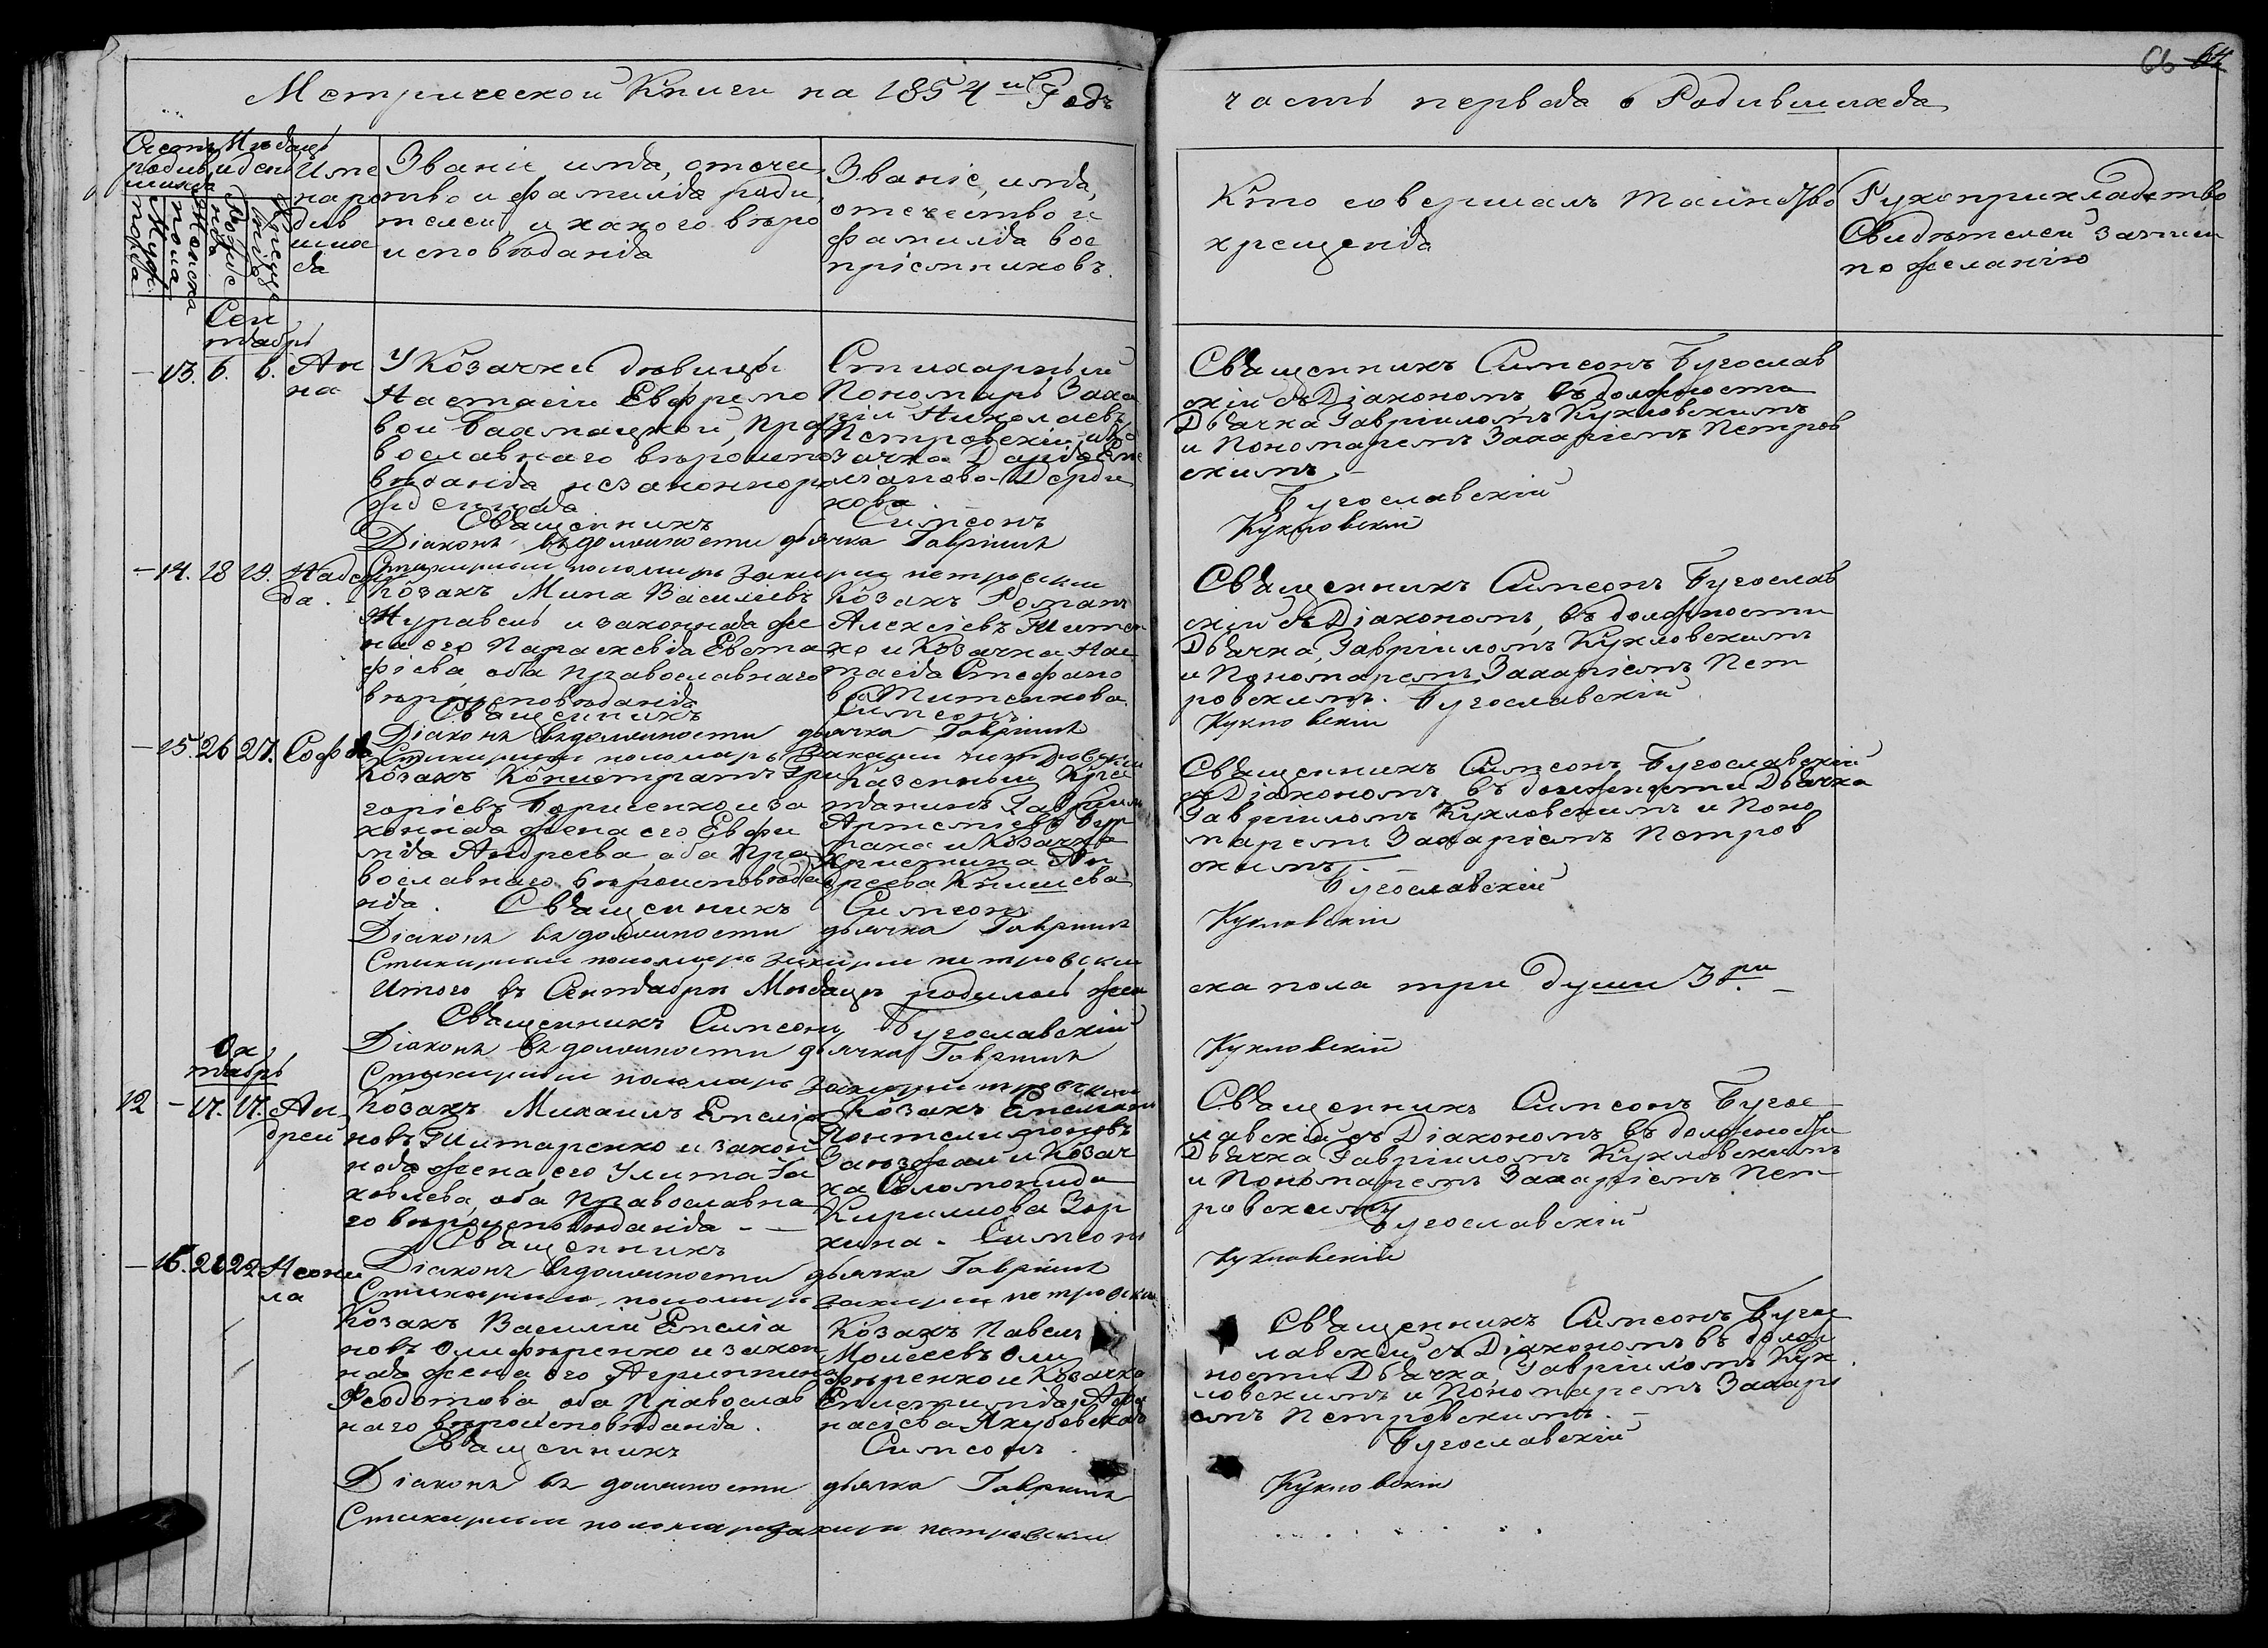 66 64
Метрической Книги на 1854й Годъ
часть первая о Родившихся
Счетъ родившихся
Мужеска пола
Женска пола
Мѣсяцъ и день
Рожденія
Крещенія
Имена родившихся
Званіе, имя, отече
ство и фамилія роди
телей, и какого вѣро
исповѣданія
Званіе, имя,
отечество и
фамилія вос
пріемниковъ.
Кто совершалъ таинство
крещенія
Рукоприкладство
Свидѣтелей записи
по желанію
Сен
тябрь
13. 6. 6. Ан
на
У Козачки дѣвицы
Настасіи Ефремо
вой Бахмацкой, Пра
вославнаго вѣроиспо
вѣданія незаконноро
жденная
Стихарный
Пономарь Заха
рій Николаевъ
Петровскій и Ко
зачка Дарія Еме
ліанова Дерды
кова
Священникъ Симеонъ Бугослав
скій съ Діакономъ, въ должности
Дьячка Гавріиломъ Кукловскимъ
и Пономаремъ Захаріемъ Петров
скимъ.
Священникъ Симеонъ Бугославскій
Діаконъ въ должности дьячка Гавріилъ Кукловскій
Стихарный пономарь Захарій петровскій
14. 28 29. Надеж
да.
Козакъ Мина Василіевъ
Журавель и законная же
на его Параскевія Евста
фіева, оба Православнаго
вѣроисповѣданія
Козакъ Романъ
Алексіевъ Титен
ко и Козачка Нас
тасія Стефано
ва Титенкова
Священникъ Симеонъ Бугослав
скій съ Діакономъ, въ должности
Дьячка, Гавріиломъ Кукловскимъ
и Пономаремъ Захаріемъ Пет
ровскимъ.
Священникъ Симеонъ Бугославскій
Діаконъ въ должности дьячка Гавріилъ Кукловскій
Стихарный пономарь Захарій петровскій
15. 26 27. Софія
Козакъ Конистратъ Гри
горіевъ Борисенко и за
конная жена его Евфи
мія Андреева, оба Пра
вославнаго вѣроисповѣда
нія.
Казенный Крес
тянинъ Гавріилъ
Артеміевъ
и Козачка
Христина Ан
дреева Кишева
Священникъ Симеонъ Бугославскій
съ Діакономъ въ должности Дьячка
Гавріиломъ Кукловскимъ и Поно
маремъ Захаріемъ Петров
скимъ.
Священникъ Симеонъ Бугославскій
Діаконъ въ должности дьячка Гавріилъ Кукловскій
Стихарный пономарь Захарій петровскій
Итого въ Сентябрѣ Мѣсяцѣ родилось жен
ска пола три души 3ри.
Священникъ Симеонъ Бугославскій
Діаконъ въ должности дьячка Гавріилъ Кукловскій
Стихарный пономарь Захарій петровскій
Ок
тябрь
12 17. 17. Ан
дрей
Козакъ Михаилъ Емелія
новъ Титаренко и закон
ная жена его Улита Іа
ковлева, оба Православна
го вѣроисповѣданія
Козакъ Емеліанъ
Пантелимоновъ
и Козач
ка Соломонида
Кирилова Зор
кина.
Священникъ Симеонъ Буго
славскій съ Діакономъ въ должности
Дьячка Гавріиломъ Кукловскимъ
и Пономаремъ Захаріемъ Пет
ровскимъ
Священникъ Симеонъ Бугославскій
Діаконъ въ должности дьячка Гавріилъ Кукловскій
Стихарный пономарь Захарій петровскій
16. 28 29 Неони
ла
Козакъ Василій Емелія
новъ Олиференко и закон
ная жена его Агрипина
Феодотова, оба Православ
наго вѣроисповѣданія.
Козакъ Павелъ
Моисеевъ Оли
ференко и Козачка
Епистимія Афа
насіева Якубовская
Священникъ Симеонъ Буго
славскій съ Діакономъ въ долж
ности Дьячка, Гавріиломъ Кук
ловскимъ и Пономаремъ Захарі
емъ Петровскимъ.
Священникъ Симеонъ Бугославскій
Діаконъ въ должности дьячка Гавріилъ Кукловскій
Стихарный пономарь Захарій петровскій